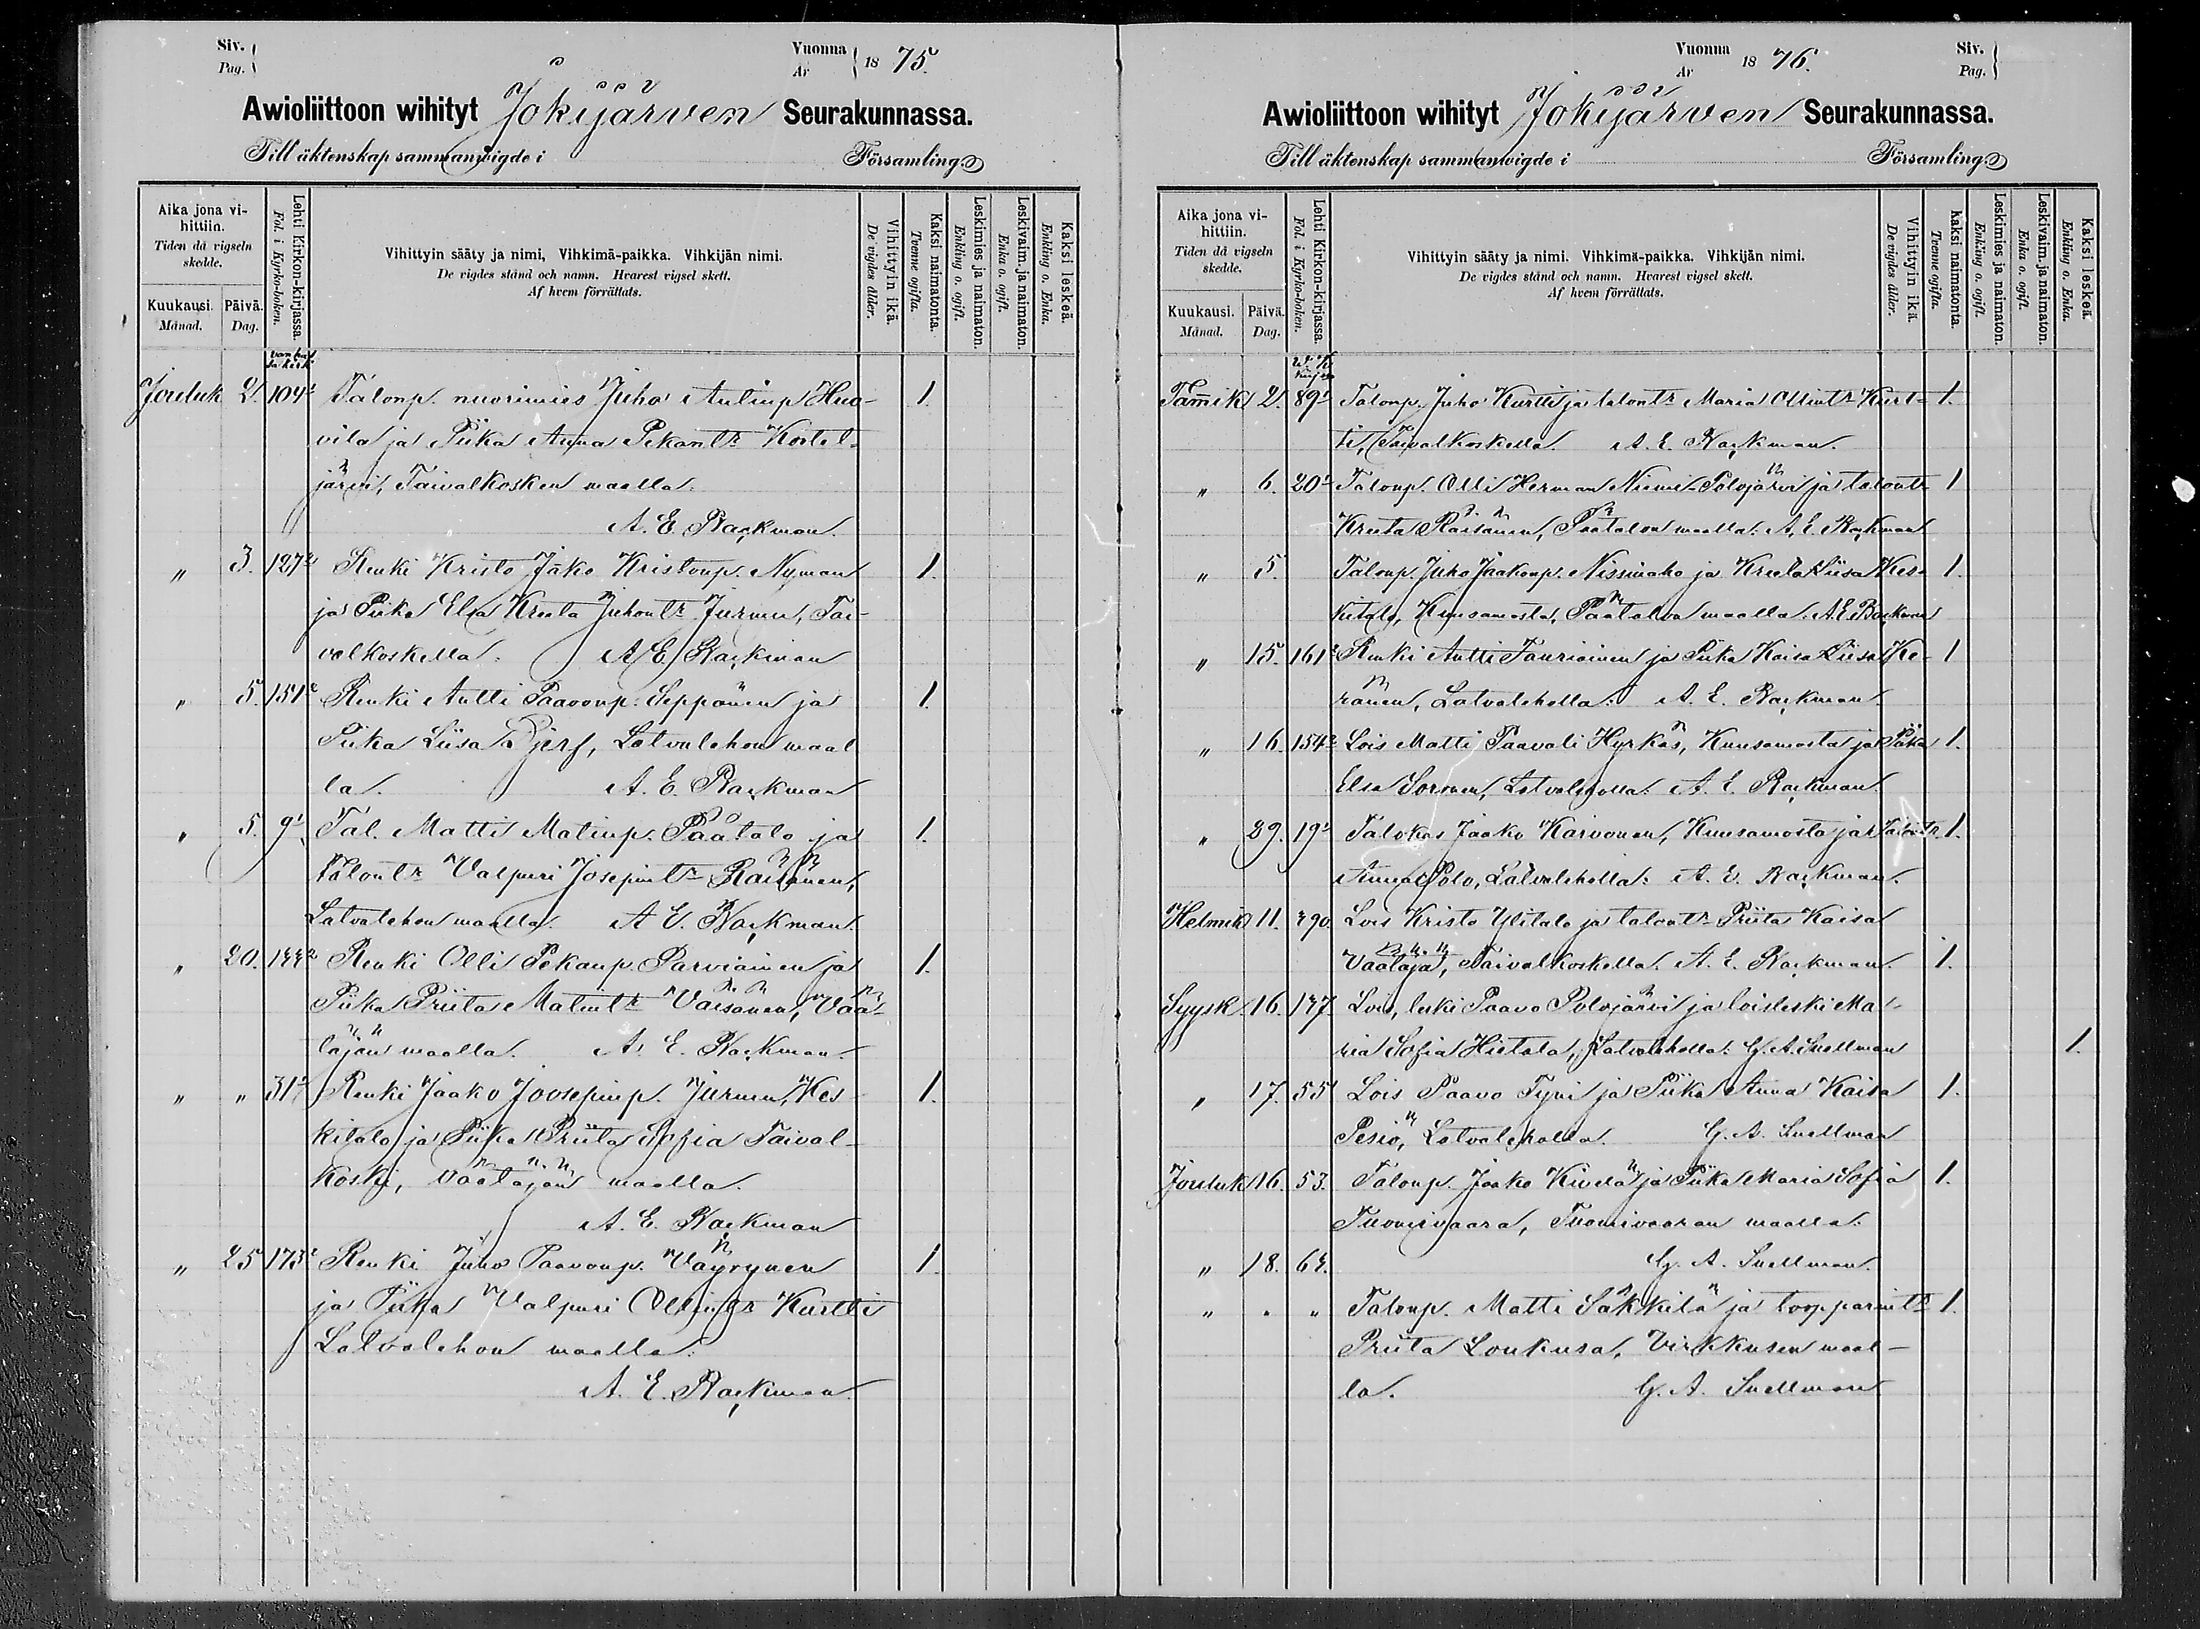 Siv. Pag.
Vuonna År 1875.
Awioliittoon wihityt Jokijärven Seurakunnassa.
Till äktenskap sammanvigde i Församling
Aika jona vihittiin. Tiden då vigseln skedde.
Kuukausi. Månad.
Päivä. Dag.
Lehti Kirkon-kirjassa. Fol. i Kyrko-boken.
Vihittyin sääty ja nimi, Vihkimä-paikka. Vihkijän nimi.
De vigdes stånd och namn. Hvarest vigsel skett.
Af hvem förrättats.
Vihittyin ikä. De vigdes ålder.
Kaksi naimatonta. Tvenne ogifta.
Leskimies ja naimaton. Enkling o. ogift.
Leskivaim. ja naimaton. Enka o. ogift.
Kaksi leskeä. Enkling o. Enka.
Jouluk 2. 104 Talonp. nuorimies Juho Antinp Huo- 1.
vila ja Piika Anna Pekantr Kostel-
järvi, Taivalkosken maalla.
A. E. Backman.
" 3. 127 Renki Kristo Jako Kristonp. Nyman 1.
ja Piika Elsa Kreeta Juhontr Jurmu, Tai-
valkoskella. A. E. Backman
" 5. 151 Renki Antti Paavonp. Seppänen ja 1.
Piika Liisa Djerf, Latvalehon maal
la. A. E. Backman
" 5. 9 Tal. Matti Matinp. Päätalo ja 1.
Talontr Valpuri Josepintr Räisänen,
Latvalehon maalla. A E. Backman.
" 20. 144 Renki Olli Pekanp. Parviainen ja 1.
Piika Priita Matintr Väisänen, Vää-
täjän maalla. A. E. Backman.
" " 31 Renki Jaako Joosepinp. Jurmu, Kes- 1.
kitalo ja Piika Priita Sofia Taival-
koski, Väätäjän maalla.
A. E. Backman
" 25 173 Renki Juho Paavonp. Väyrynen 1.
ja Piika Valpuri Ollintr Kurtti
Latvalehon maalla.
A. E. Backman.
Vuonna År 1876.
Siv. Pag.
Awioliittoon wihityt Jokijärven Seurakunnassa.
Till äktenskap sammanvigde i Församling
Aika jona vihittiin. Tiden då vigseln skedde.
Kuukausi. Månad.
Päivä. Dag.
Lehti Kirkon-kirjassa. Fol. i Kyrko-boken.
Vihittyin sääty ja nimi. Vihkimä-paikka. Vihkijän nimi.
De vigdes stånd och namn. Hvarest vigsel skett.
Af hvem förrättats.
Vihittyin ikä. De vigdes ålder.
Kaksi naimatonta. Tvenne ogifta.
Leskimies ja naimaton. Enkling o. ogift.
Leskivaim. ja naimaton. Enka o. ogift.
Kaksi leskeä. Enkling o. Enka.
Tammik 2. 89 Talonp. Juho Kurtti ja talontr Maria Ollintr Kurt- 1.
ti, Taivalkoskella. A. E. Backman.
" 6. 20 Talonp. Olli Herman Niemi-Polojärvi ja talontr 1
Kreeta Räisänen, Päätalon maalla. A. E. Backman
" 5. Talonp. Juho Jaakonp. Nissinaho ja Kreeta Liisa Kes- 1.
kitalo, Kuusamosta, Päätalon maalla. A. E. Backman
" 15. 161 Renki Antti Tauriainen ja Piika Kaisa Liisa Ke- 1
ränen, Latvaleholla. A. E. Backman.
" 16. 154 Lois Matti Paavali Hyrkäs, Kuusamosta ja Piika 1.
Elsa Sormunen, Latvaleholla. A. E. Backman.
" 29. 19 Talokas Jaako Karvonen, Kuusamosta ja Talontr 1.
Anna Polo, Latvaleholla. A. E. Backman.
Helmik 11. 190. Lois Kristo Ylitalo ja talontr Priita Kaisa
Väätäjä, Taivalkoskella. A. E. Backman. 1.
Syysk 16. 147 Lois, leski Paavo Polojärvi ja loisleski Ma-
ria Sofia Hietala, Latvaleholla. G. A. Snellman 1.
" 17. 55 Lois Paavo Tyni ja Piika Anna Kaisa 1.
Pesiö, Latvaleholla. G. A. Snellman
Jouluk 16. 53. Talonp. Jaako Kivelä ja Piika Maria Sofia 1.
Tuomivaara, Tuomivaaran maalla.
" 18. 64. G. A. Snellman.
" " " Talonp. Matti Säkkilä ja toopparintr 1.
Priita Loukusa, Virkkusen maal-
la. G. A. Snellman